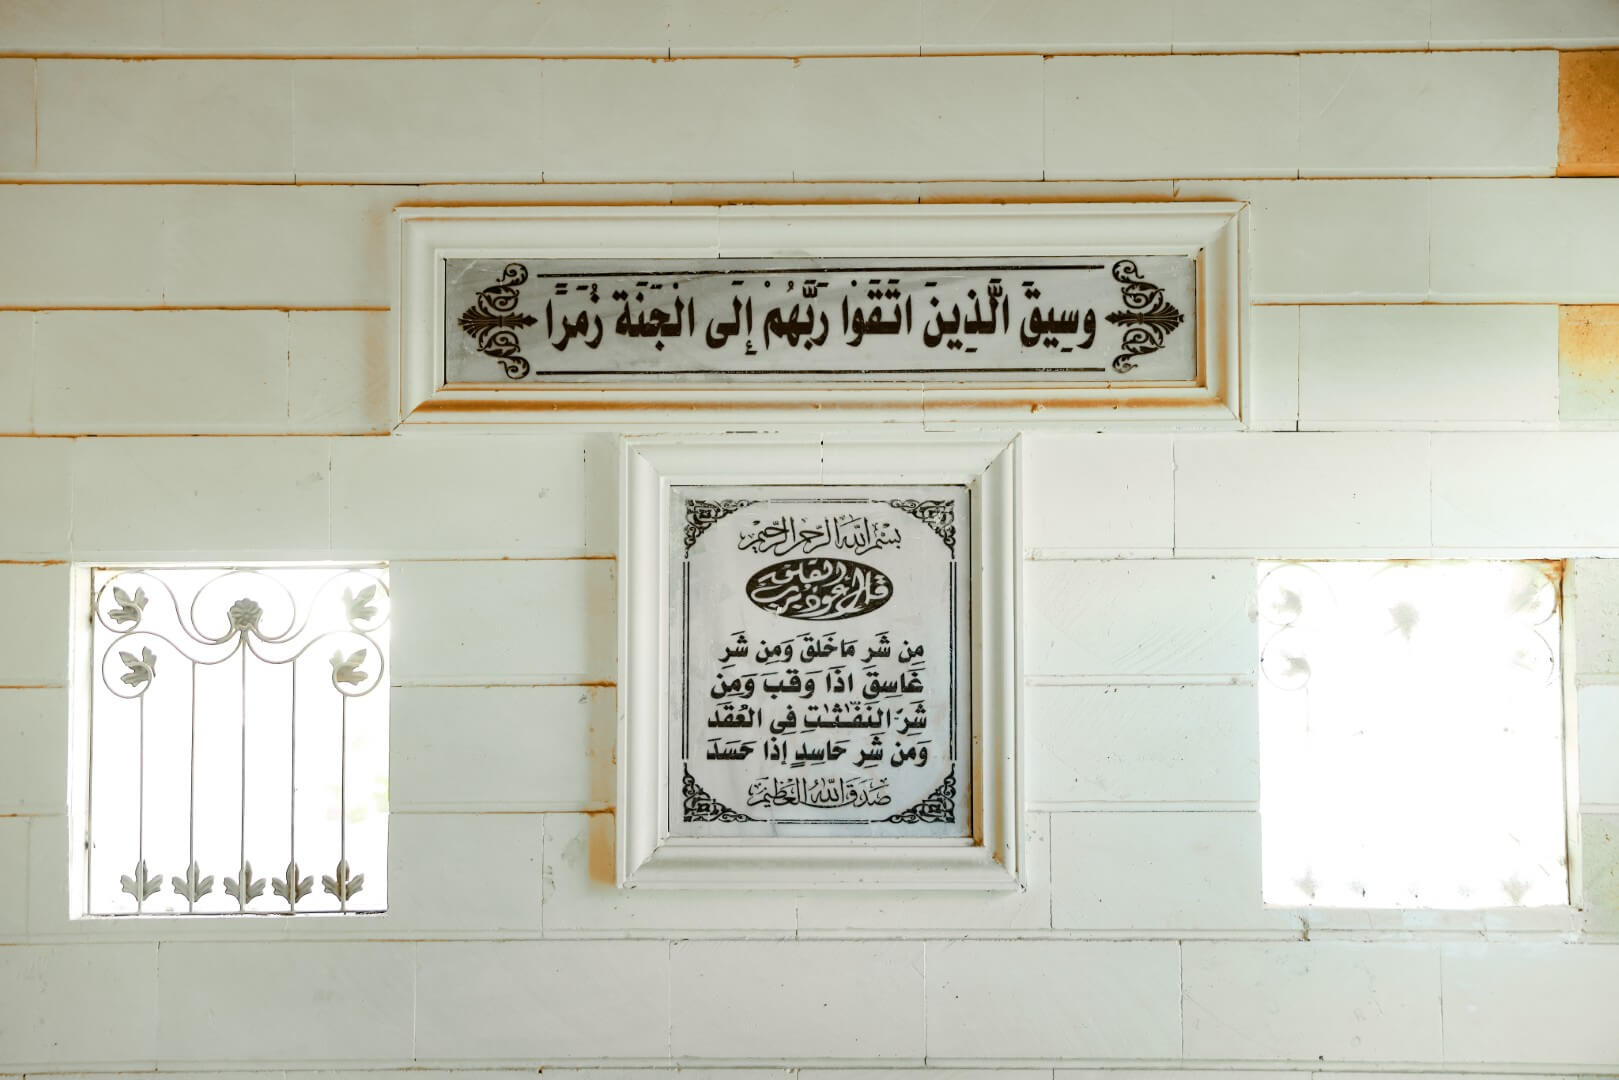 وَسِيقَ الَّذِينَ اتَّقَوْا رَبَّهُمْ إِلَى الْجَنَّةِ زُمَرًا
بسم الله الرحمن الرحيم
قل اعوذ برب الفلق
مِن شَرِ مَا خَلَقَ وَمِن شَرِ
غَاسِقَ اذَا وَقَبَ وَمِن
شَرِّ النَفّٰثٰتِ فِى العُقَد
وَمِن شَرِ حَاسِدٍ إذا حَسَدَ
صَدَقَ اللهُ العَظِيمُ